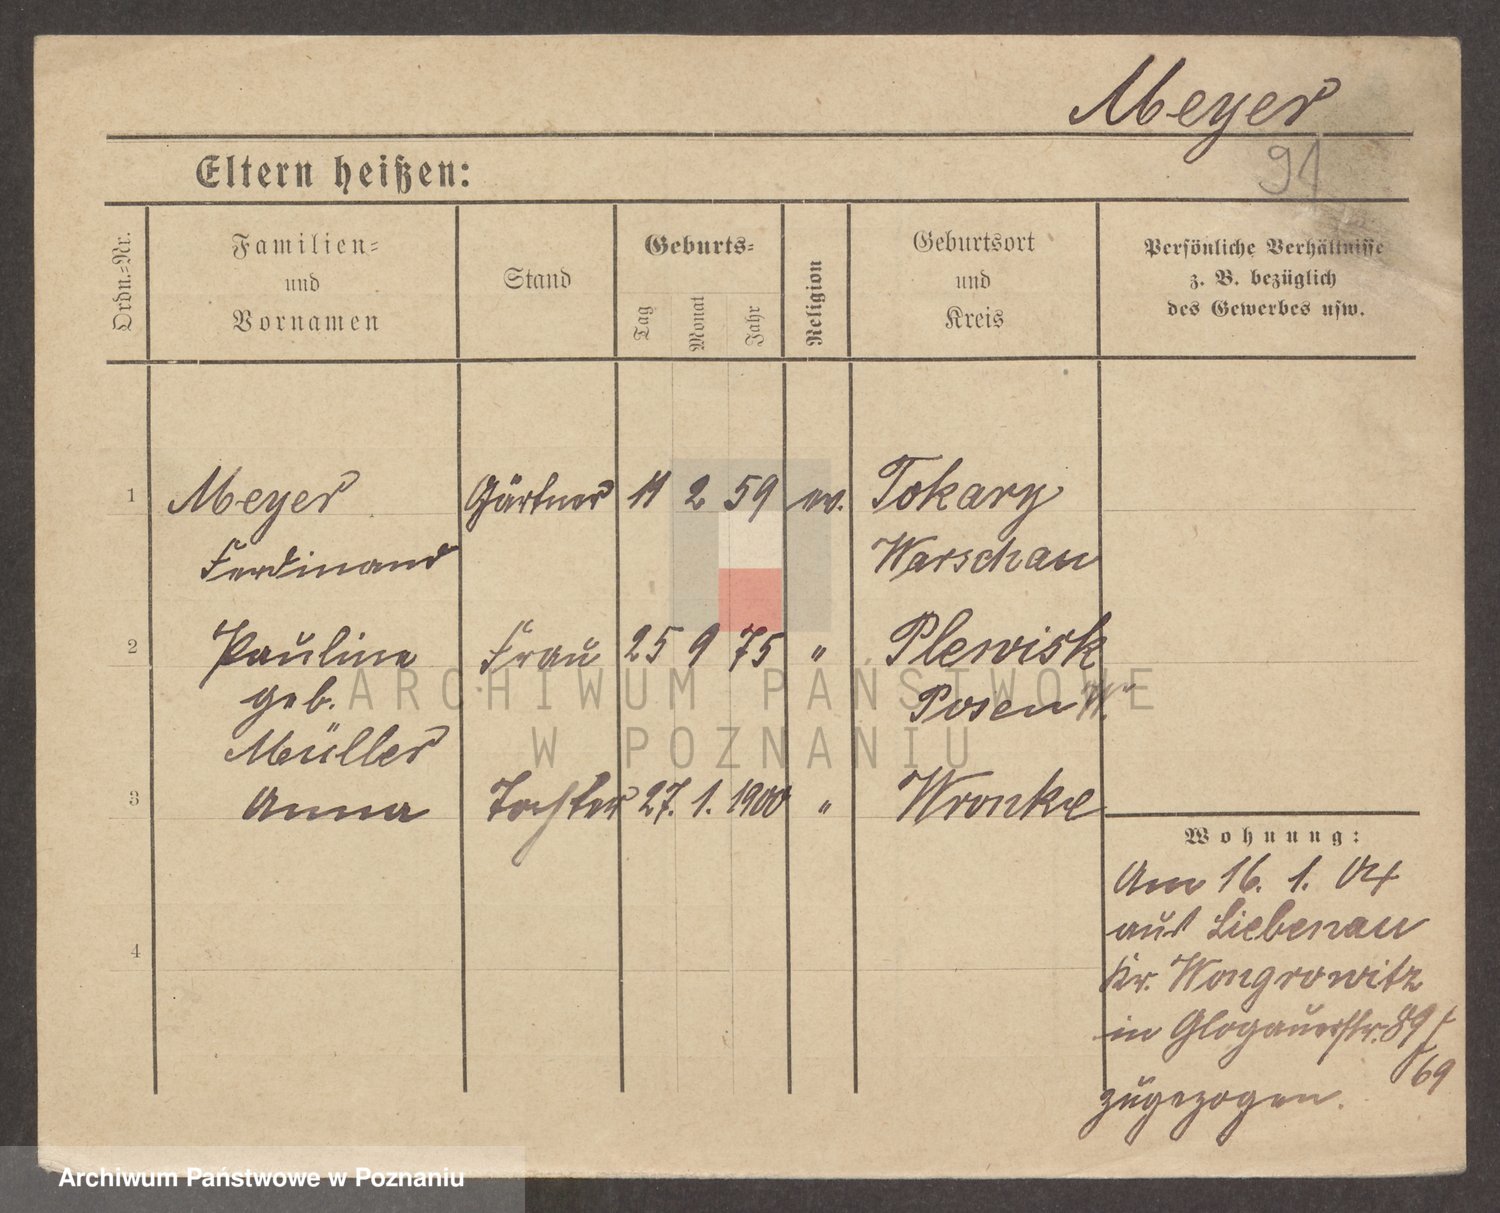 Meyer
91
Eltern heißen:
Ordn.-Nr.
Familien-
und
Vornamen
Stand
Geburts-
Tag
Monat
Jahr
Religion
Geburtsort
und
Kreis
Persönliche Verhältnisse
z. B. bezüglich
des Gewerbes usw.
1 Meyer Gärtner 11 2 59 ev. Tokary
Ferdinand Warschau
2 Pauline Frau 25 9 75 " Plewisk
geb. Posen W.
Müller
3 Anna Tochter 27. 1. 1900 " Wronke
Wohnung:
Am 16. 1. 04
aus Liebenau
4
Kr. Wongrowitz
in Glogauerstr. 89/
69
zugezogen.
ARCHIWUM PAŃSTWOWE
W POZNANIU
Archiwum Państwowe w Poznaniu